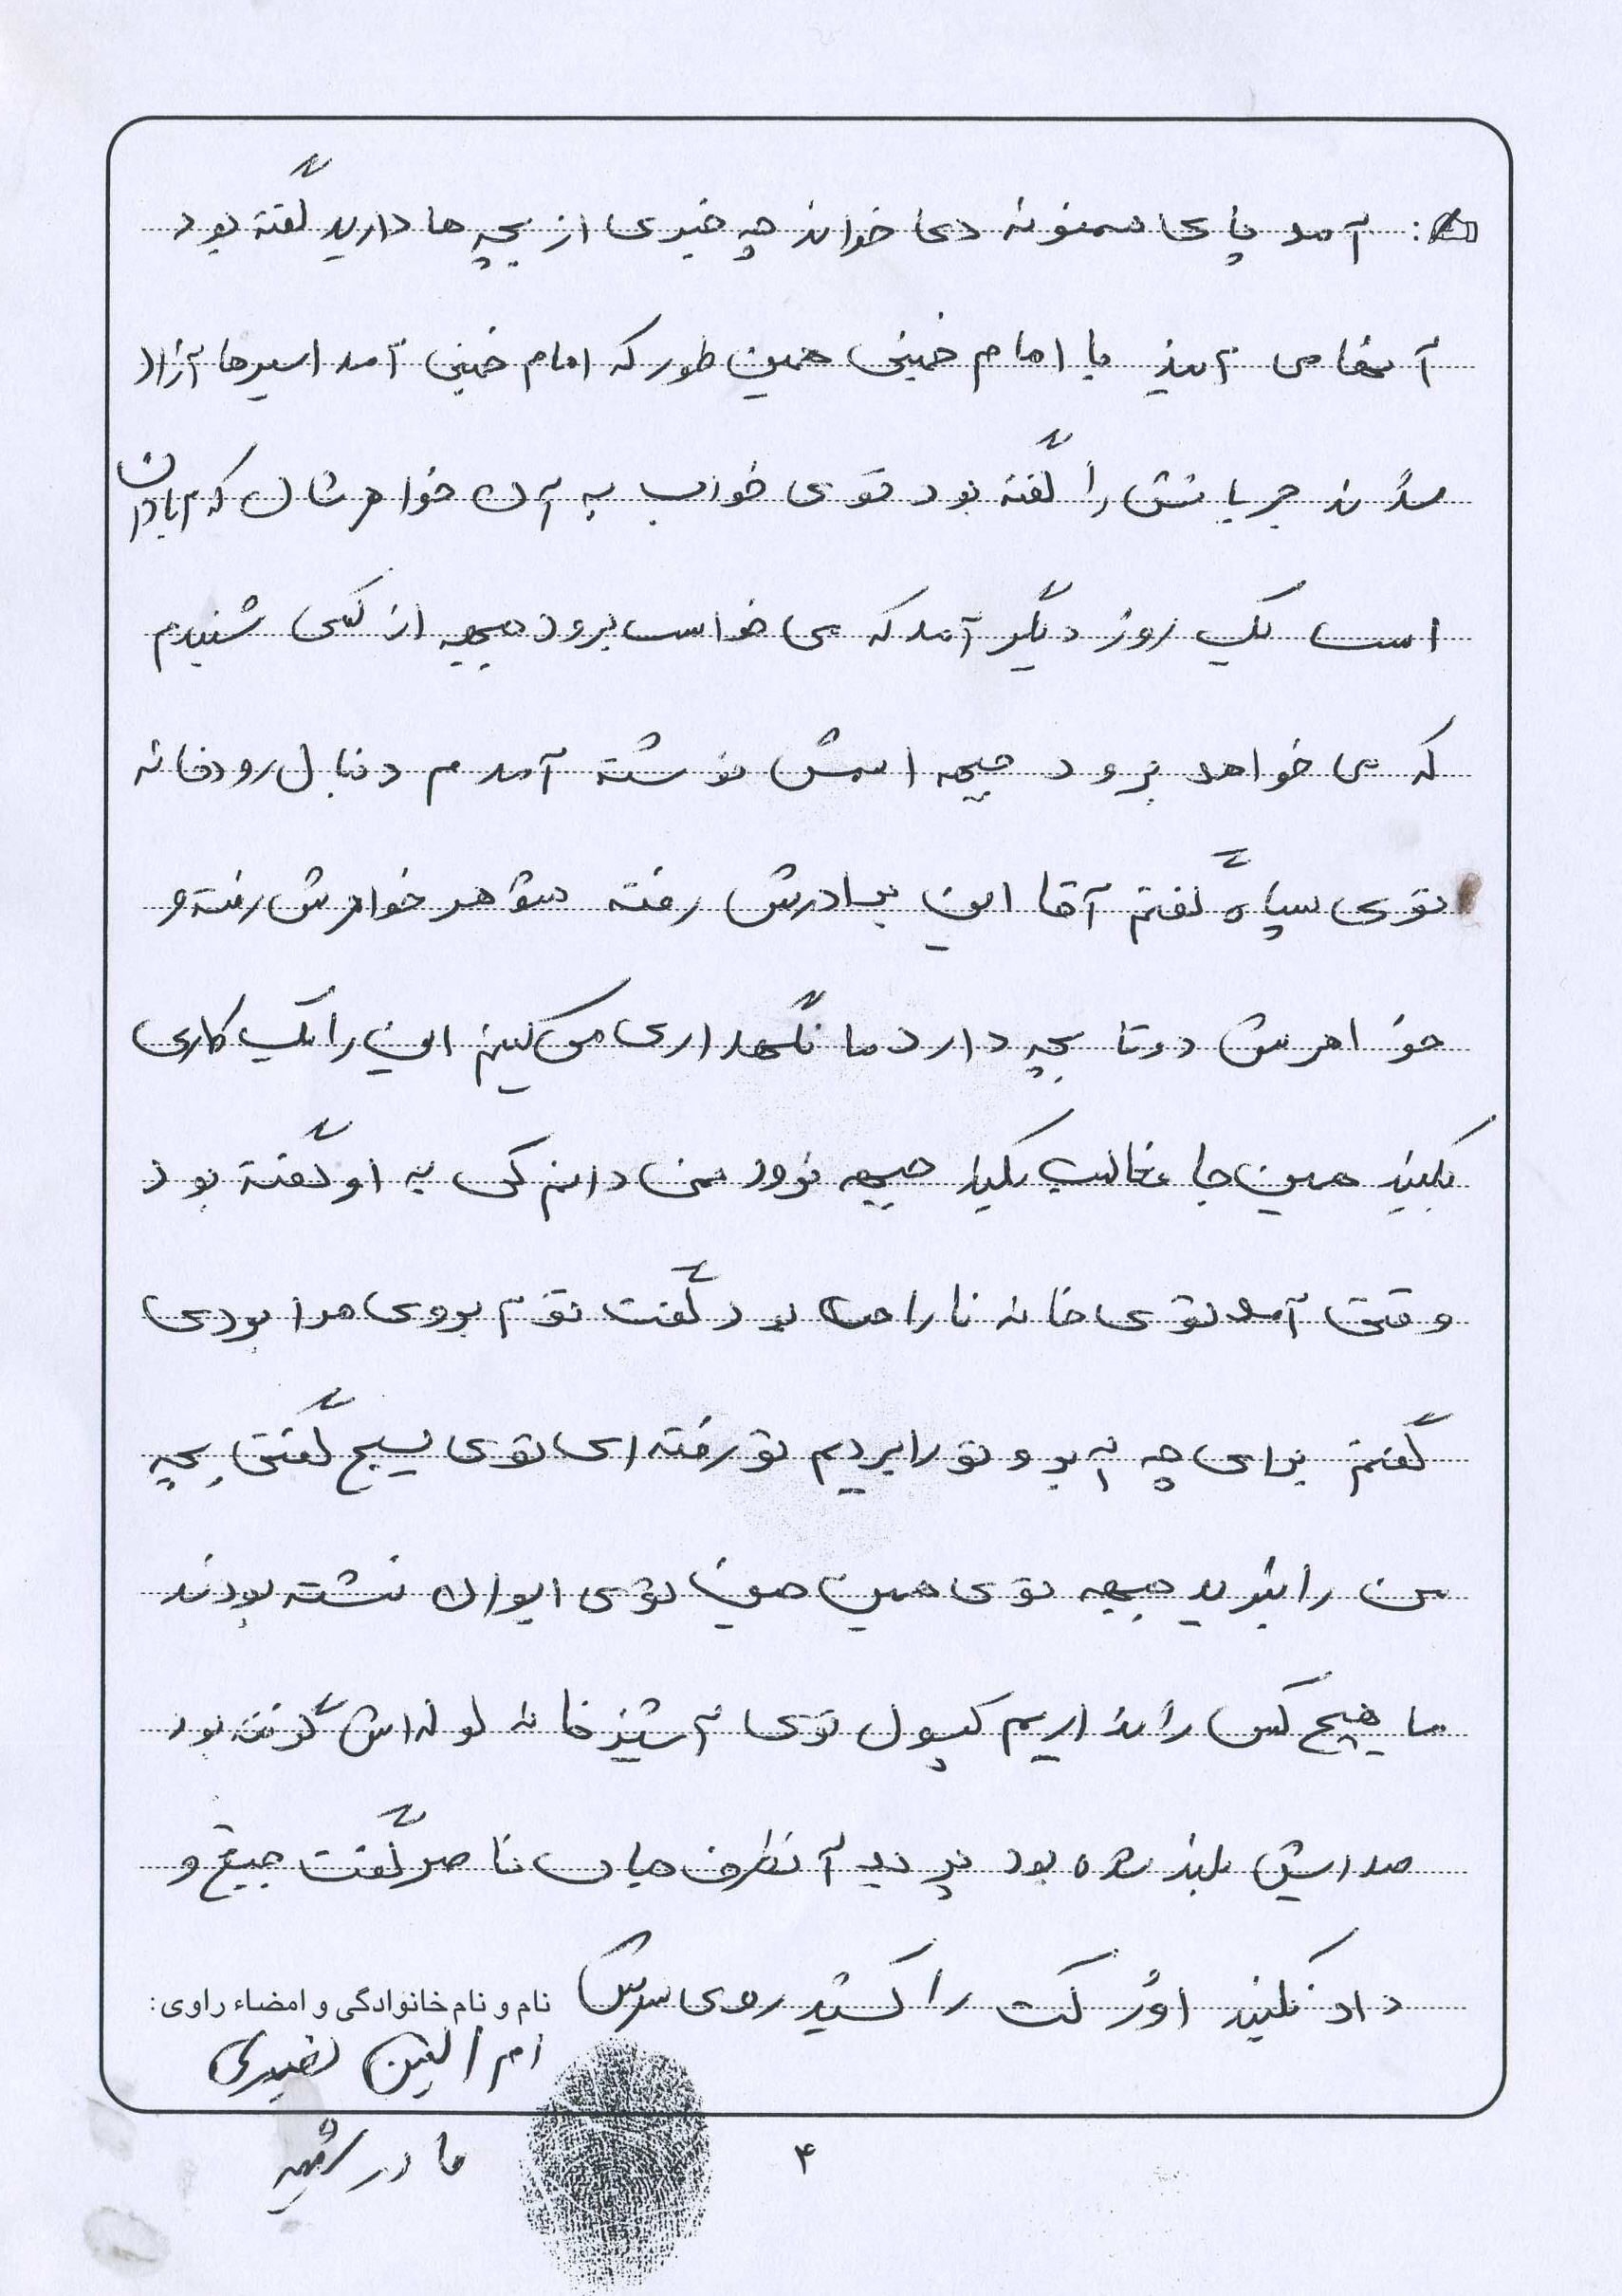 آمد پای ممنونه دعا خواند چه خبری از بچه ها دارید گفته بود
آنها می آیند با امام خمینی همین طور که امام خمینی آمد اسیرها آزاد
شدند جریانش را گفته بود توی خواب به آن خواهرشان که آبادان
است یک روز دیگر آمد که می خواست برود جبهه از کسی شنیدم
که می خواهد برود جبهه اسمش نوشته آمدم دنبال رودخانه
توی سپاه گفتم آقا این برادرش رفته شوهر خواهرش رفته و
خواهرش دوتا بچه دارد ما نگهداری می کنیم این را یک کاری
بکنید همین جا فعالیت بکند جبهه نرود نمی دانم کی به او گفته بود
وقتی آمد توی خانه ناراحت بود گفت تو آبروی مرا بردی
گفتم برای چه آبرو تو را بردیم تو رفته ای توی بسیج گفتی بچه
من را نبرید جبهه توی همین صف توی ایوان نشته بودند
ما هیچ کس را نداریم کپسول توی آشپزخانه لوله اش گرفته بود
صدایش بلند شده بود پرید آنطرف حیاط ناصر گفت جیغ و
داد نکنید اورکت را کشید روی سرش
نام و نام خانوادگی و امضاء راوی:
ام البنین نصیری
مادر شهید
۴